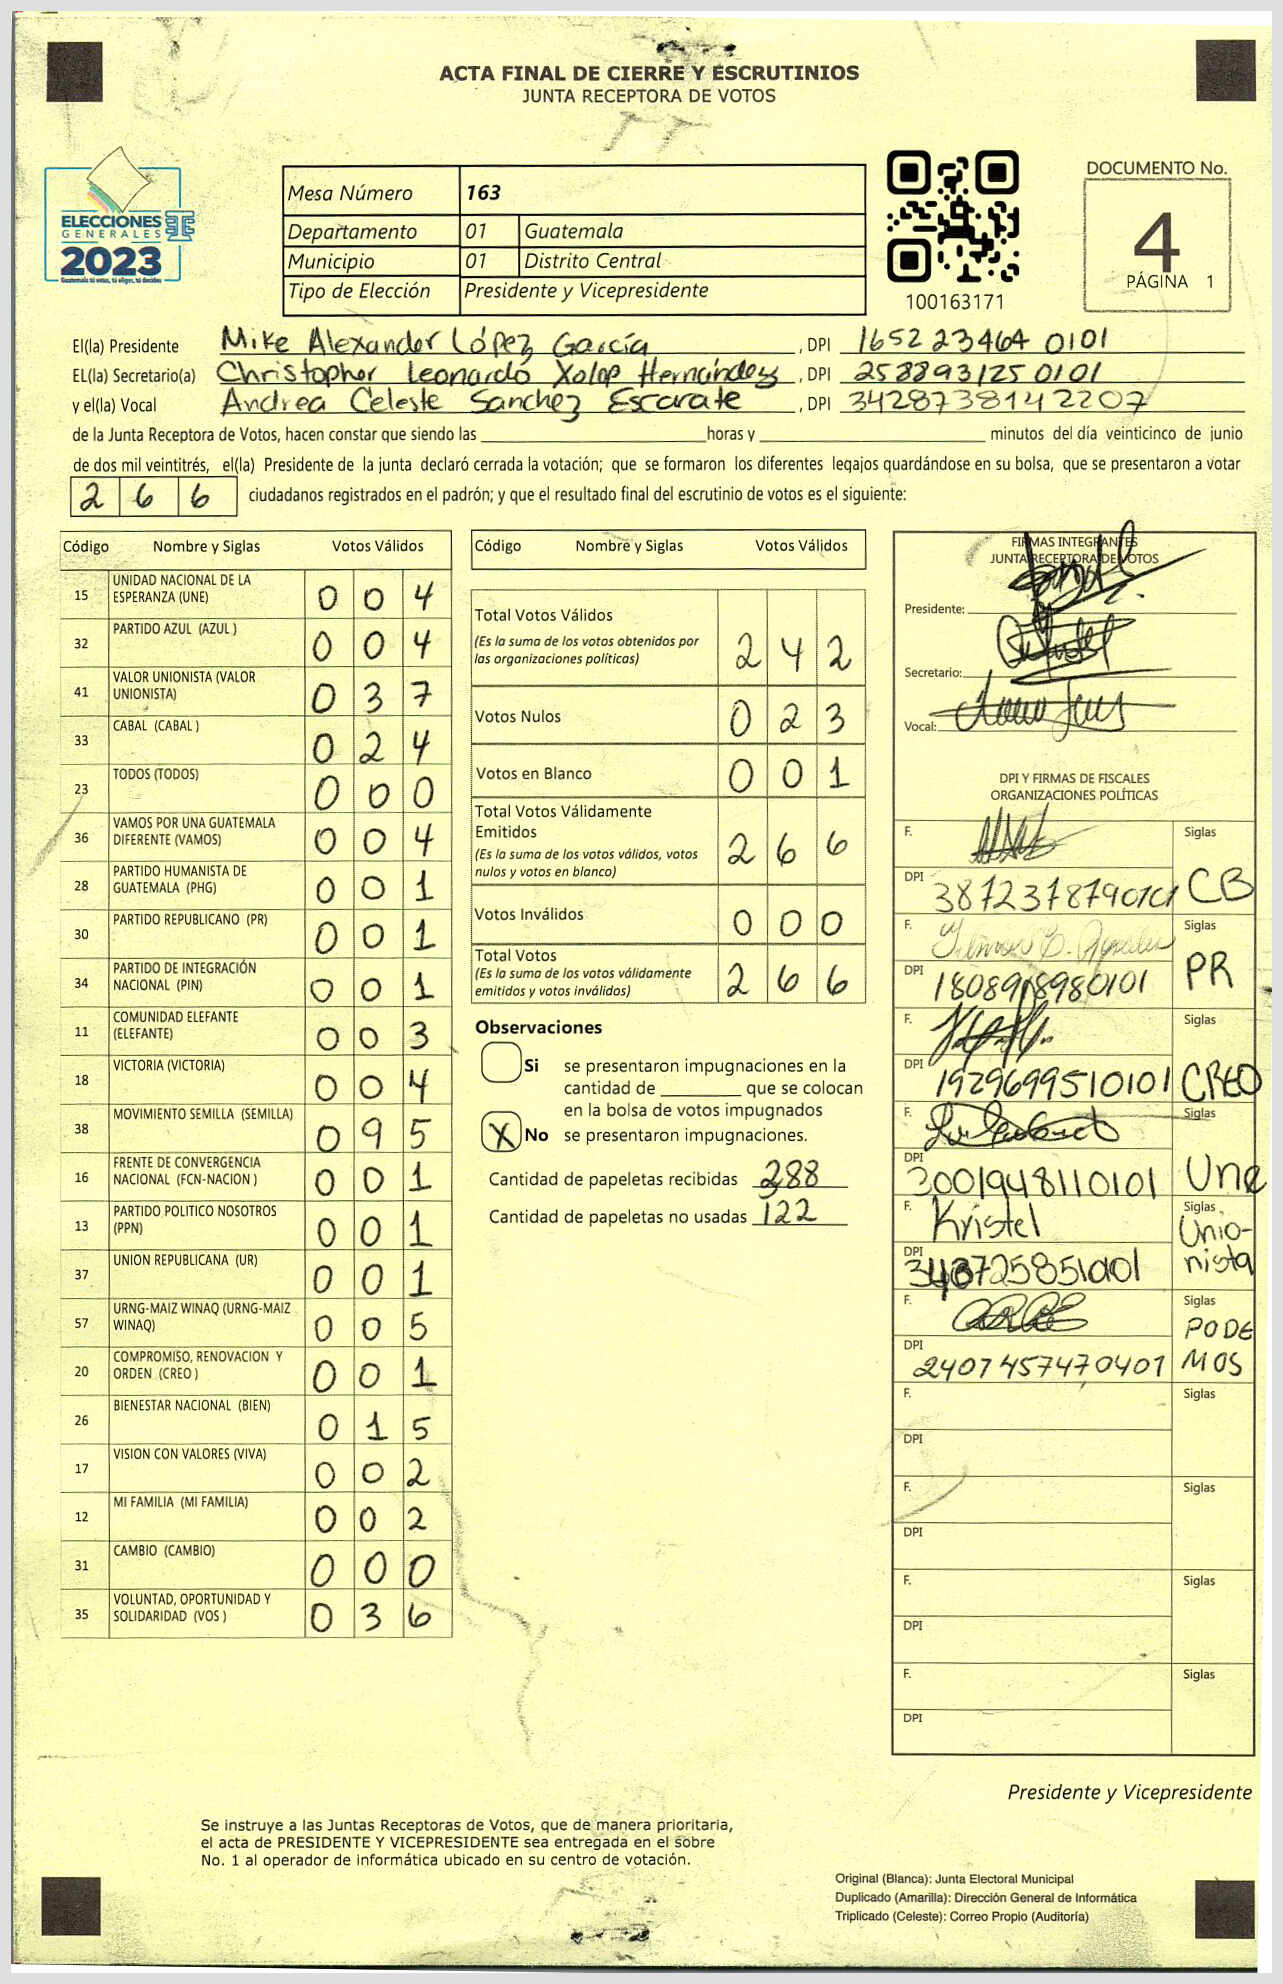 ACTA FINAL DE CIERRE Y ESCRUTINIOS
JUNTA RECEPTORA DE VOTOS
ELECCIONES
GENERALES
2023
Guatemala tú votas, tú eliges, tú decides
Mesa Número 163
Departamento 01 Guatemala
Municipio 01 Distrito Central
Tipo de Elección Presidente y Vicepresidente
100163171
DOCUMENTO No.
4
PÁGINA 1
El(la) Presidente Mike Alexander López García, DPI 1652 23464 0101
EL(la) Secretario(a) Christopher Leonardo Xolop Hernández, DPI 258893125 0101
y el(la) Vocal Andrea Celeste Sanchez Escarate, DPI 3428738142207
de la Junta Receptora de Votos, hacen constar que siendo las horas y minutos del día veinticinco de junio
de dos mil veintitrés, el(la) Presidente de la junta declaró cerrada la votación; que se formaron los diferentes legajos guardándose en su bolsa, que se presentaron a votar
2 6 6 ciudadanos registrados en el padrón; y que el resultado final del escrutinio de votos es el siguiente:
Código Nombre y Siglas Votos Válidos
15 UNIDAD NACIONAL DE LA ESPERANZA (UNE) 0 0 4
32 PARTIDO AZUL (AZUL ) 0 0 4
41 VALOR UNIONISTA (VALOR UNIONISTA) 0 3 7
33 CABAL (CABAL ) 0 2 4
23 TODOS (TODOS) 0 0 0
36 VAMOS POR UNA GUATEMALA DIFERENTE (VAMOS) 0 0 4
28 PARTIDO HUMANISTA DE GUATEMALA (PHG) 0 0 1
30 PARTIDO REPUBLICANO (PR) 0 0 1
34 PARTIDO DE INTEGRACIÓN NACIONAL (PIN) 0 0 1
11 COMUNIDAD ELEFANTE (ELEFANTE) 0 0 3
18 VICTORIA (VICTORIA) 0 0 4
38 MOVIMIENTO SEMILLA (SEMILLA) 0 9 5
16 FRENTE DE CONVERGENCIA NACIONAL (FCN-NACION ) 0 0 1
13 PARTIDO POLITICO NOSOTROS (PPN) 0 0 1
37 UNION REPUBLICANA (UR) 0 0 1
57 URNG-MAIZ WINAQ (URNG-MAIZ WINAQ) 0 0 5
20 COMPROMISO, RENOVACION Y ORDEN (CREO ) 0 0 1
26 BIENESTAR NACIONAL (BIEN) 0 1 5
17 VISION CON VALORES (VIVA) 0 0 2
12 MI FAMILIA (MI FAMILIA) 0 0 2
31 CAMBIO (CAMBIO) 0 0 0
35 VOLUNTAD, OPORTUNIDAD Y SOLIDARIDAD (VOS ) 0 3 6
Código Nombre y Siglas Votos Válidos
Total Votos Válidos 2 4 2
(Es la suma de los votos obtenidos por
las organizaciones políticas)
Votos Nulos 0 2 3
Votos en Blanco 0 0 1
Total Votos Válidamente
Emitidos 2 6 6
(Es la suma de los votos válidos, votos
nulos y votos en blanco)
Votos Inválidos 0 0 0
Total Votos 2 6 6
(Es la suma de los votos válidamente
emitidos y votos inválidos)
Observaciones
Si se presentaron impugnaciones en la
cantidad de que se colocan
en la bolsa de votos impugnados
X No se presentaron impugnaciones.
Cantidad de papeletas recibidas 288
Cantidad de papeletas no usadas 122
FIRMAS INTEGRANTES
JUNTA RECEPTORA DE VOTOS
Presidente:
Secretario:
Vocal:
DPI Y FIRMAS DE FISCALES
ORGANIZACIONES POLÍTICAS
F. Siglas
DPI 3872378790101 CB
F. Siglas
DPI 1808918980101 PR
F. Siglas
DPI 1929699510101 CREO
F. Siglas
DPI 3001948110101 Une
F. Kristel Siglas Unio-
DPI nista
F. Siglas PODE
DPI 2407457470401 MOS
F. Siglas
DPI
F. Siglas
DPI
F. Siglas
DPI
F. Siglas
DPI
Presidente y Vicepresidente
Se instruye a las Juntas Receptoras de Votos, que de manera prioritaria,
el acta de PRESIDENTE Y VICEPRESIDENTE sea entregada en el sobre
No. 1 al operador de informática ubicado en su centro de votación.
Original (Blanca): Junta Electoral Municipal
Duplicado (Amarilla): Dirección General de Informática
Triplicado (Celeste): Correo Propio (Auditoría)